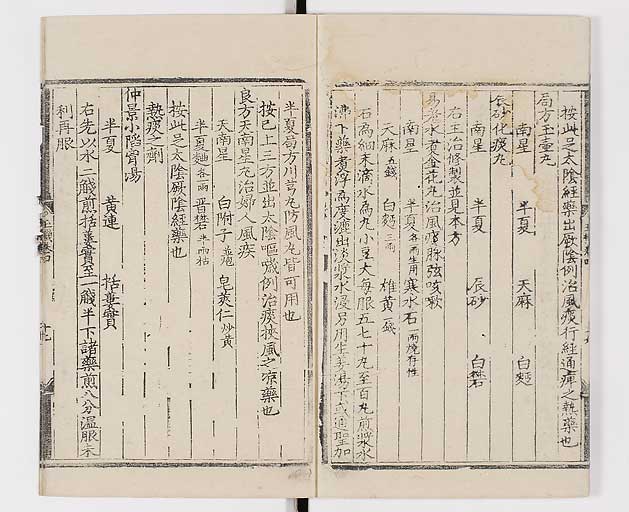 按此足太陰經藥出厥陰例治風痰行經通痺之熱藥也
局方玉壺丸
南星 半夏 天麻 白麪
辰砂化痰丸
南星 半夏 辰砂 白礬
右主治修製並見本方
易老水煮金花丸治風痰脉弦咳嗽
南星 半夏各一兩生用 寒水石一兩燒存性
天麻五錢 白麪三兩 雄黃一錢
石爲細末滴水爲丸小豆大每服五七十丸至百丸煎漿水
沸下藥煮浮爲度漉出淡漿水浸另用生姜湯下或通聖加
半夏局方川芎丸防風丸皆可用也
按已上三方並出太陰嘔噦例治痰挾風之凉藥也
良方天南星丸治婦人風痰
天南星 白附子並炮 皂莢仁炒黃
半夏麯各一兩 晋礬半兩枯
按此足太陰厥陰經藥也
熱痰之劑
仲景小陷胷湯
半夏 黃連 括蔞實
右先以水二錢煎括蔞實至一錢半下諸藥煎八分溫服未
利再服